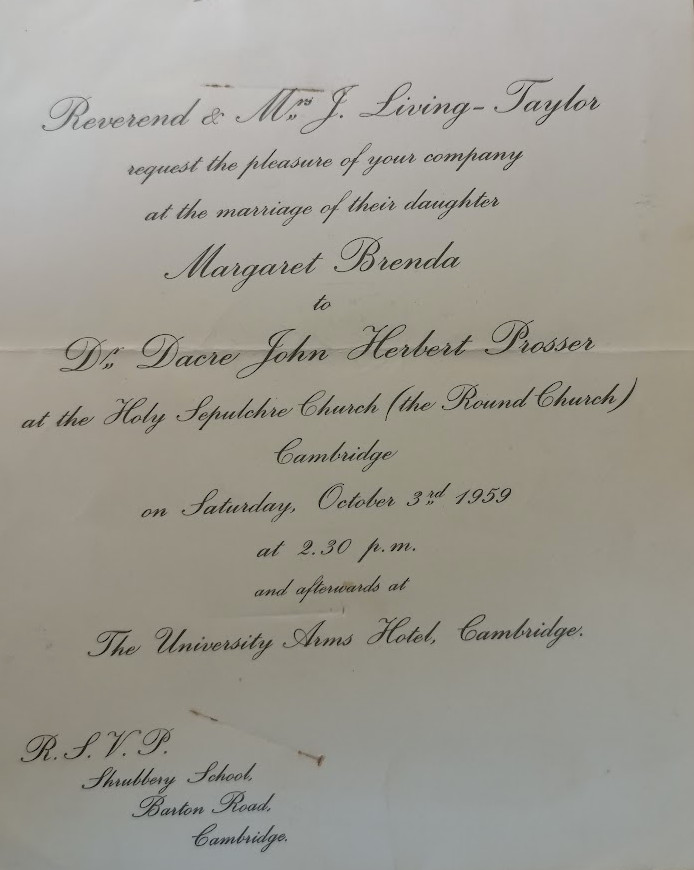 Reverend & Mrs. J. Living-Taylor
request the pleasure of your company
at the marriage of their daughter
Margaret Brenda
to
Dr. Dacre John Herbert Prosser
at the Holy Sepulchre Church (the Round Church)
Cambridge
on Saturday, October 3rd 1959
at 2.30 p.m.
and afterwards at
The University Arms Hotel, Cambridge.
R.S.V.P.
Shrubbery School,
Barton Road,
Cambridge.